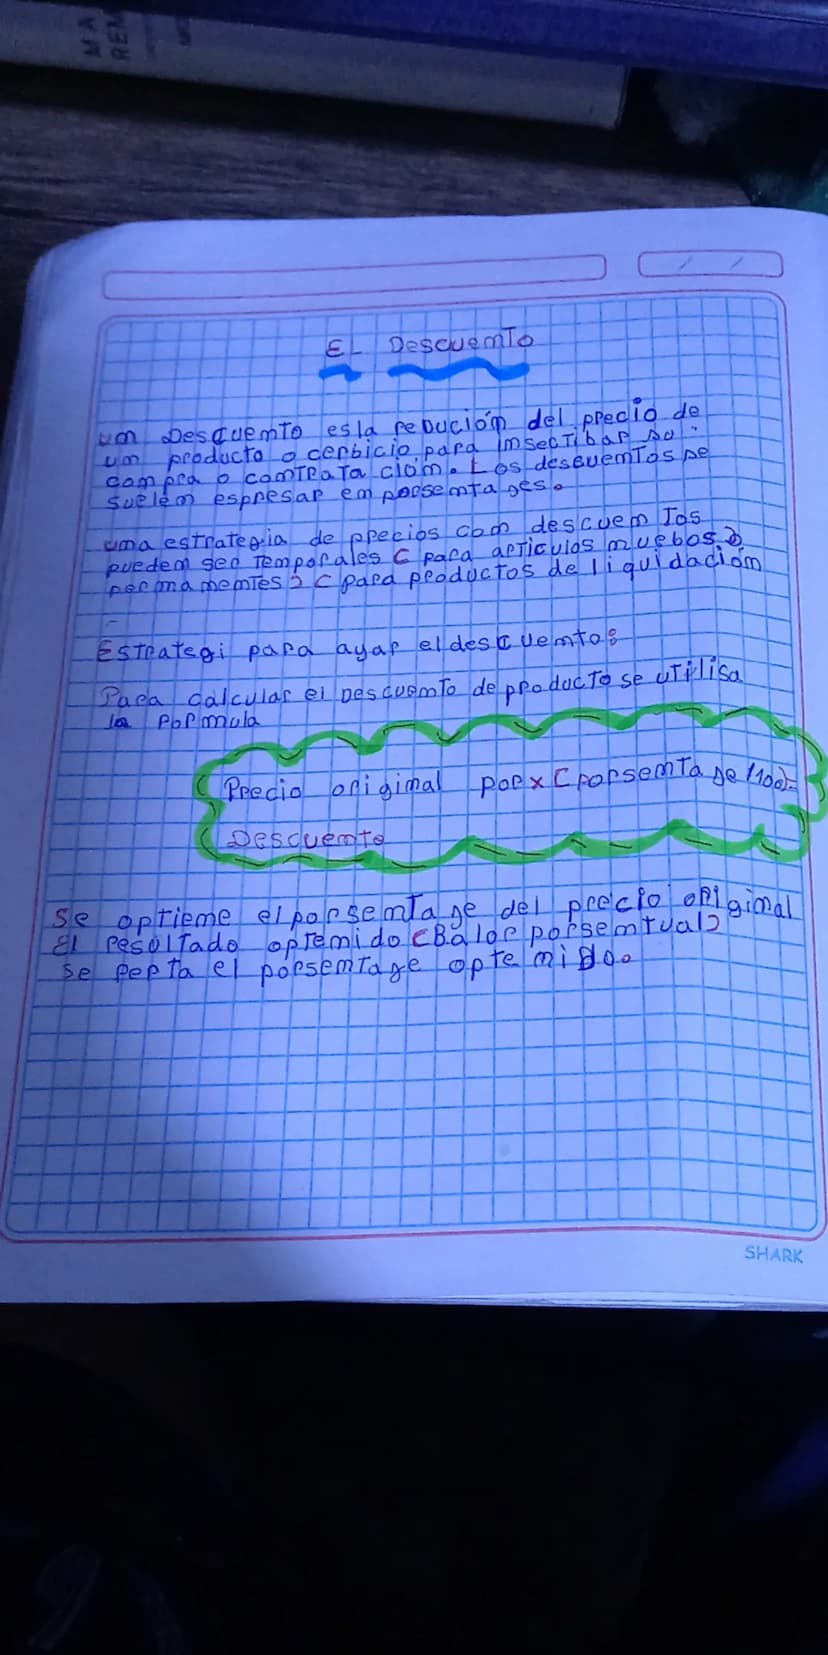 MA
REM
EL Descuemto
um Descuemto es la reducióm del precio de
um producto o cerbicio, para imsectibar su
compra o comtrata ciom. Los descuemtos se
suelem espresar em porsemtages.
uma estrategia de precios com descuem tos
puedem ser temporales ( para articulos muebos )
perma memtes ) ( para productos de liquidacióm
Estrategi para ayar el descuemto:
Para calcular el Descuemto de producto se utilisa
la Pormula
Precio origimal por x ( porsemta ge /100)=
Descuemto
se optieme el porsemta ge del precio origimal
El resultado optemido ( Balor porsemtual )
se repta el porsemtage opte mido.
SHARK